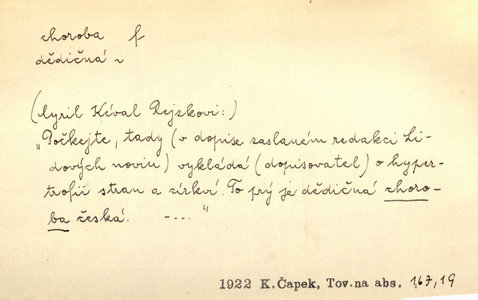 choroba f
dědičná ~
(Cyril Kéval Rejzkovi:)
"Počkejte, tady (v dopise zaslaném redakci Li-
dových novin) vykládá (dopisovatel) o hyper-
trofii stran a církví. To prý je dědičná choro-
ba česká. -..."
1922 K.Čapek, Tov.na abs. 167,19